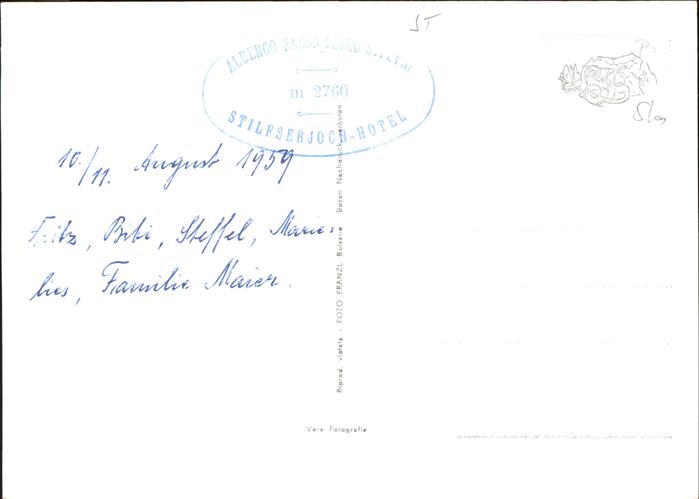 ST
ALBERGO PASSO DELLO STELVIO
m 2760
STILFSERJOCH-HOTEL
10./11. August 1959
Fritz, Bibi, Steffel, Marie-
lies, Familie Maier.
Riprod. vietata - FOTO FRANZL Bolzano Bozen Nachdruck verboten
Vera Fotografie